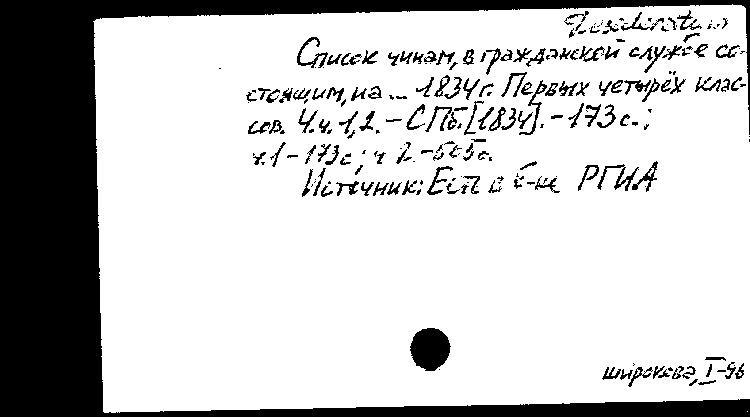 Desideratum
Список чинам, в гражданской службе со-
стоящим, на ... 1834 г. Первых четырёх клас-
сов. Ч.ч. 1, 2. – СПб. [1834]. – 173 с.;
ч. 1 – 173 с; ч 2. – 505 с.
Источник: Есть в б-ке РГИА
широкова, I-96